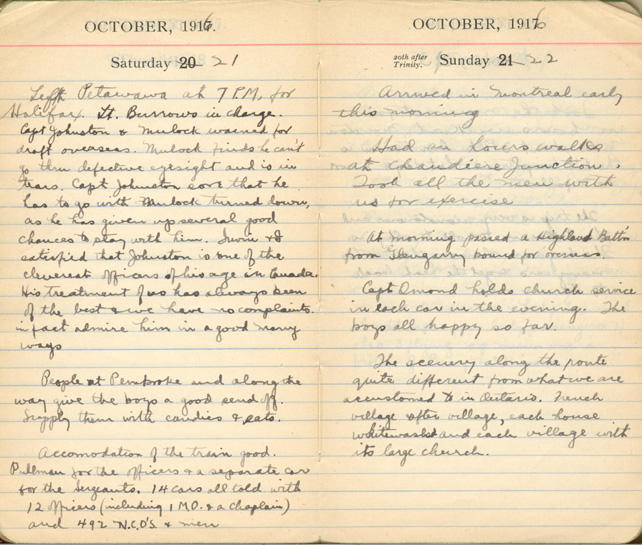 OCTOBER, 1916.
Saturday 20 21
Left Petawawa at 7 P.M. for
Halifax. Lt. Burrows in charge.
Capt Johnston & Mulock warned for
draft overseas. Mulock finds he can't
go thru defective eyesight and is in
tears. Capt Johnston sore that he
has to go with Mulock turned down,
as he has given up several good
chances to stay with him. Irwin & I
satisfied that Johnston is one of the
cleverest officers of his age in Canada
His treatment of us has always been
of the best & we have no complaints.
in fact admire him in a good many
ways
People at Pembroke and along the
way give the boys a good send off.
Supply them with candies & eats.
Accomodation of the train good.
Pullman for the officers & a separate car
for the Sergeants. 14 cars all told with
12 officers (including 1 M.O. & a Chaplain)
and 492 N.C.O's & men
OCTOBER, 1916
20th after
Trinity. Sunday 21 22
Arrived in Montreal early
this morning
Had an hours walk
at Chaudiere Junction.
Took all the men with
us for exercise
At morning passed a Highland Batt'n
from Glengarry bound for overseas
Capt Omond holds church service
in each car in the evening. The
boys all happy so far.
The scenery along the route
quite different from what we are
accustomed to in Ontario. French
village after village, each house
whitewashed and each village with
its large church.